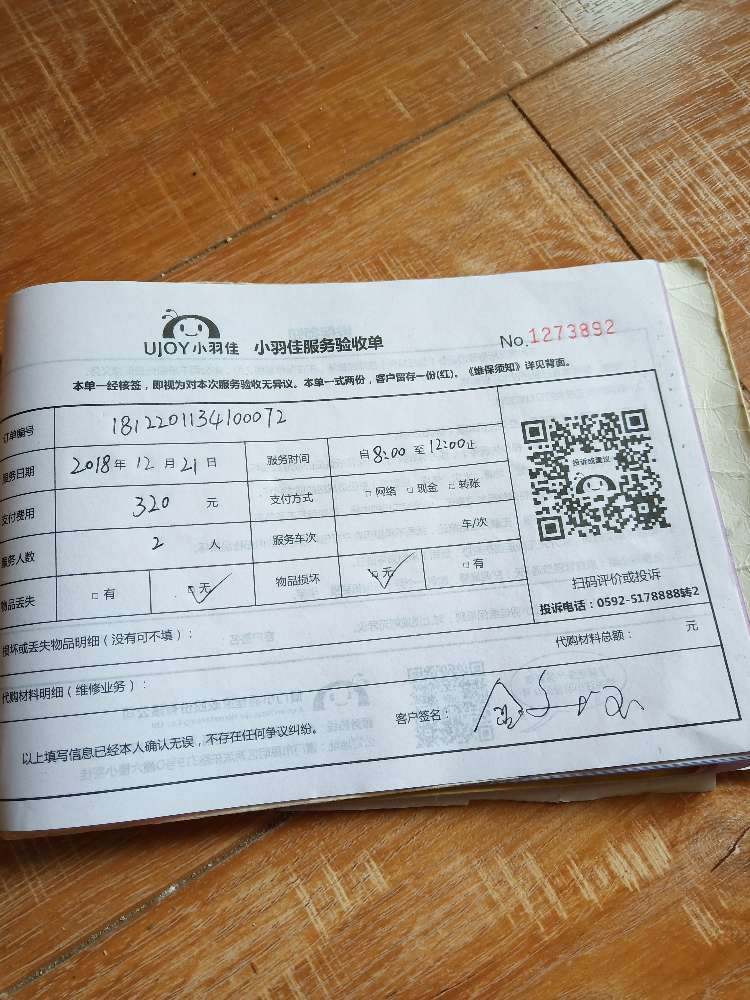 UJOY小羽佳 小羽佳服务验收单 No.1273892
本单一经核签，即视为对本次服务验收无异议。本单一式两份，客户留存一份(红)。《维保须知》详见背面。
订单编号 1812201134100072
服务日期 2018年12月21日 服务时间 自8:00至12:00止
支付费用 320 元 支付方式 □网络 □现金 □转账
服务人数 2 人 服务车次 车/次
物品丢失 □有 □无 物品损坏 □无 □有
投诉或建议
扫码评价或投诉
投诉电话：0592-5178888转2
损坏或丢失物品明细（没有可不填）：
代购材料总额： 元
代购材料明细（维修业务）：
以上填写信息已经本人确认无误，不存在任何争议纠纷。 客户签名：